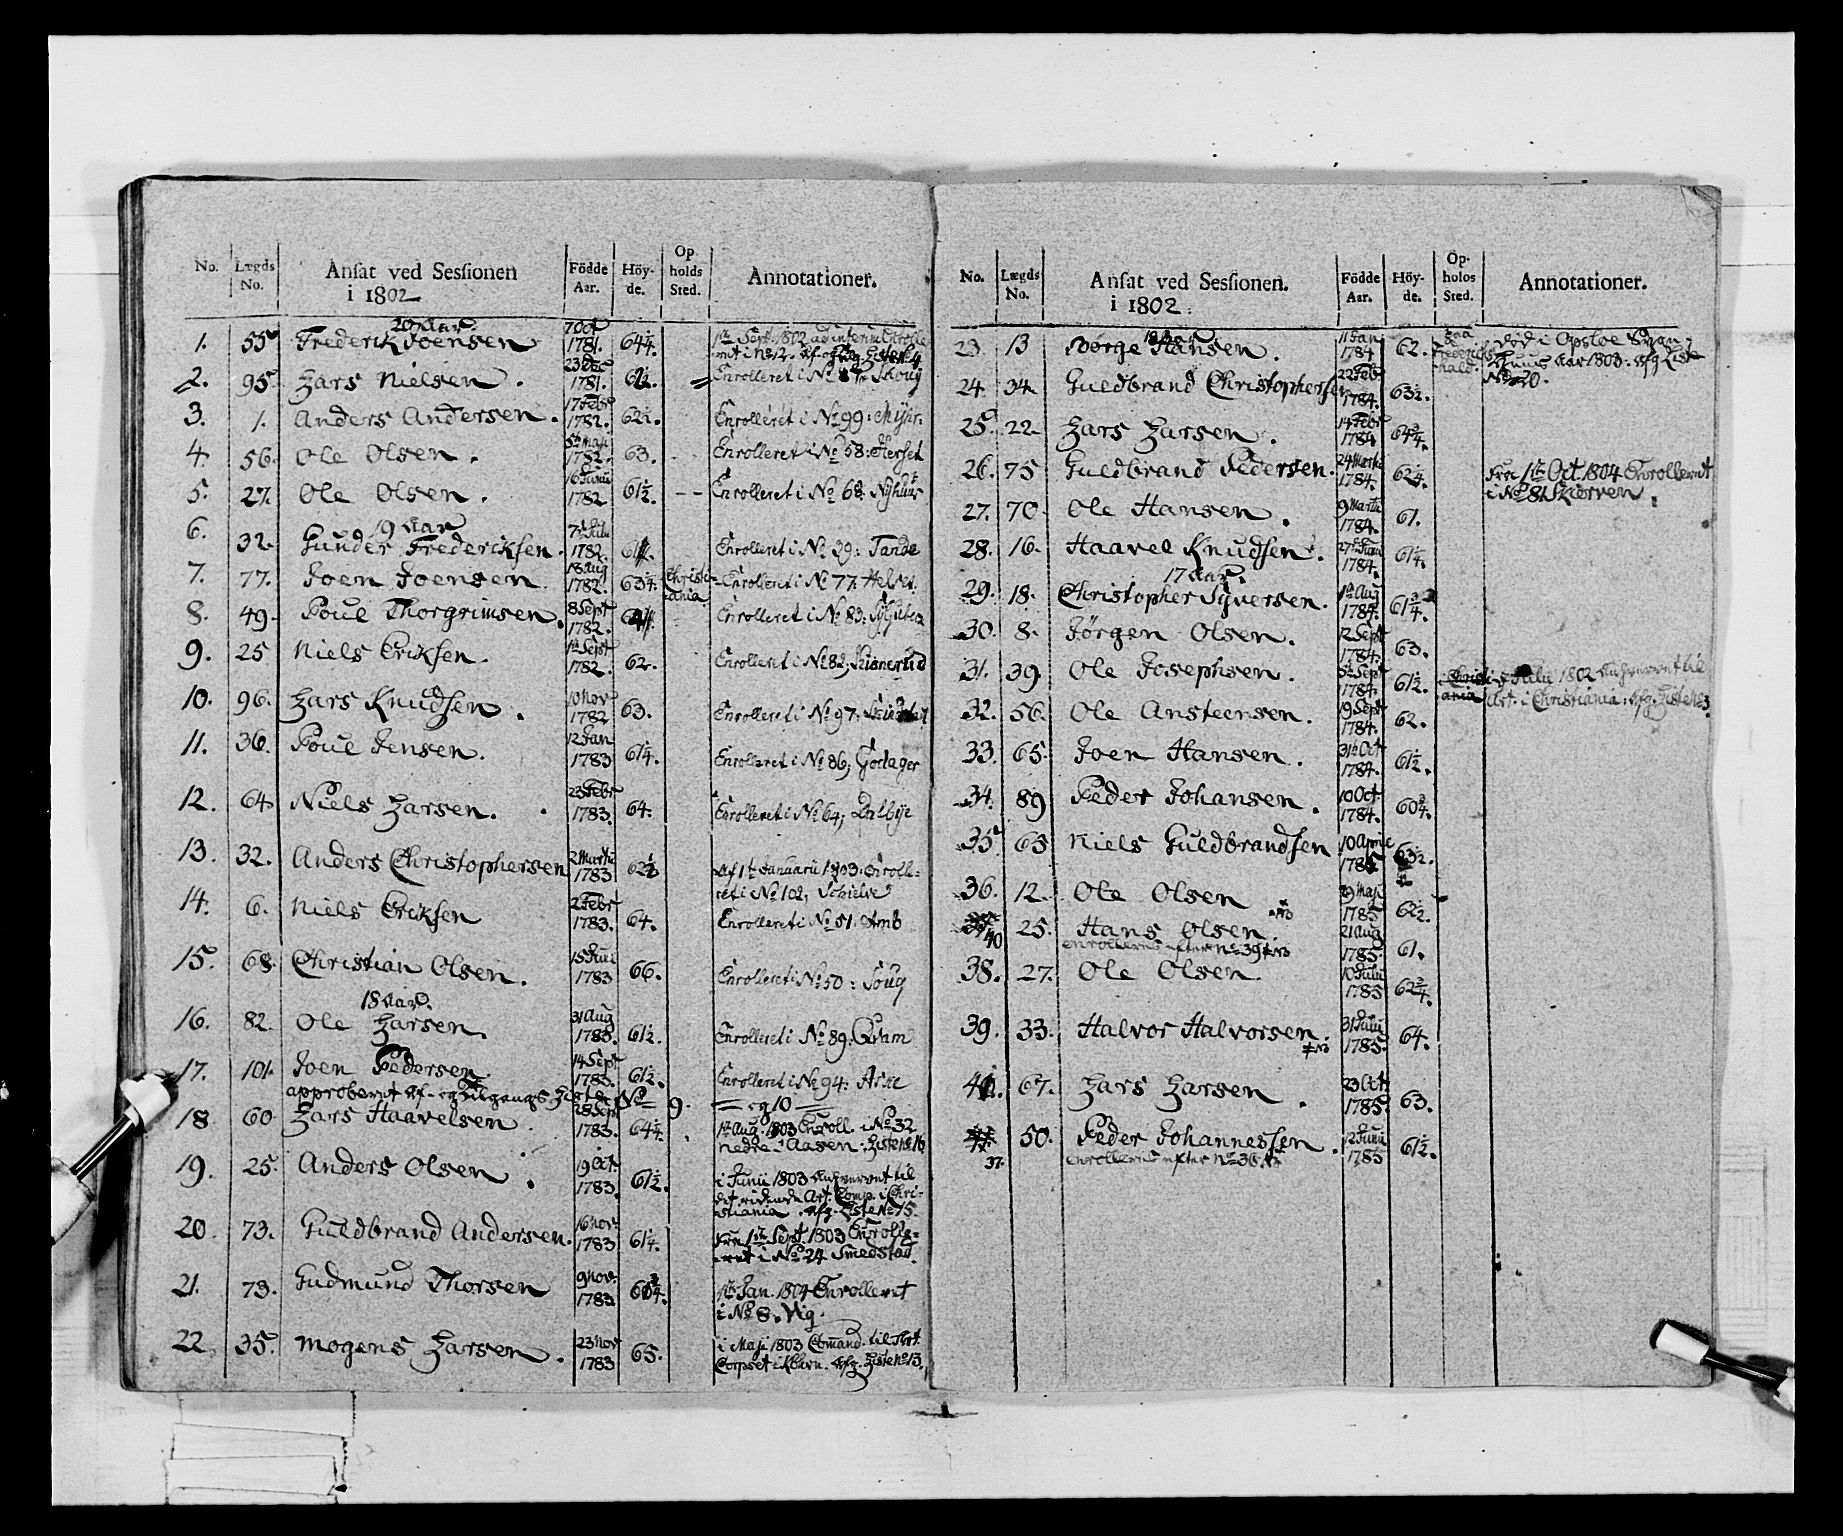 No. Lægds No. Ansat ved Sessionen i 1802 Födde Aar. Höyde. Op holds Sted. Annotationer.
20 Aar.
1. 55 Frederik Joensen 7 Oct 1781. 64¼. 1te Sept. 1802 ad interim Enrolle-
ret i No 12. Afg. Liste No 4
2. 95 Lars Nielsen. 23 Dec 1781. 61½. Enrolleret i No 87 Skoug
3. 1. Anders Andersen. 17 Febr 1782. 62½. Enrolleret i No 99: Myhr.
4. 56. Ole Olsen. 5te Maji 1782. 63. Enrolleret i No 58: Herset
5. 27. Ole Olsen. 16 Junii 1782 61½. Enrolleret i No 68: Nyhuus
19 Aar
6. 32. Gunder Fredericksen. 7de Julii 1782. Enrolleret i No 39: Tande
7. 77. Joen Joensen 18 Aug 1782. 63¼. Christiania. Enrolleret i No 77. Helset
8. 49. Poul Thorgrimsen. 8 Sept 1782. Enrolleret i No 83:
9. 25 Niels Eriksen. 1te Sept 1782. 62. Enrolleret i No 82;
10. 96. Lars Knudsen. 10 Nov 1782 63. Enrolleret i No 97.
11. 36. Poul Jensen. 12 Jan 1783 61¼. Enrolleret i No 86; Godager
12. 64 Niels Larsen. 23 Febr 1783. 64. Enrolleret i No 64; Dalbye
13. 32. Anders Christophersen 2 Martii 1783 62½ Af 1te Januarii 1803. Enrolle-
ret i No 102, Schielve
14. 6. Niels Eriksen 2 Febr 1783. 64. Enrolleret i No 51. Arnb
15. 68. Christian Olsen. 15 Junii 1783 66. Enrolleret i No 50:
18 Aar.
16. 82. Ole Larsen. 31 Aug 1783. 61½. Enrolleret i No 89: Qvam
17. 101. Joen Pedersen. 14 Sept 1783. 61½. Enrolleret i No 94:
approberet Af- og Tilgangs Liste No 9. og 10
18 60 Lars Haavelsen. 28 Sept 1783. 64¼. 1te Aug. 1803 Enroll. i No 32
nedre Aasen: Liste No 16
19. 25. Anders Olsen. 19 Oct 1783. 61½. i Junii 1803 Anhvervet til
det ridende Art. Comp. i Chri-
stiania. Afg. Liste No 15.
20. 73. Guldbrand Andersen. 16 Nov. 1783 61¼. Fra 1te Sept. 1803 Enrolle-
ret i No 24 Smedstad.
21. 73. Gudmund Thorsen 9 Nov. 1783 60¾. 1te Jan. 1804 Enrolleret
i No 8. Vig.
22. 35. Mogens Larsen. 23 Nov 1783 65. i Maji 1803 Comand. til Art.
Corpset i Kbhvn. Afg. Liste No 13.
No. Lægds No. Ansat ved Sessionen. i 1802. Födde Aar. Höyde. Op-holds Sted. Annotationer.
18 Aar
23. 13 Børge Hansen. 11 Jan 1784 62. paa Fredericks-hald. død i Opsloe
Aar 1803. Afg Liste
No 20.
24. 34. Guldbrand Christophersen 22 Feb 1784. 63½.
25. 22. Lars Larsen. 14 Febr 1784 64¾.
26. 75 Guldbrand Pedersen. 24 Martii 1784. 62¼. Fra 1te Oct. 1804 Enrolleret
i No 81 Skierven.
27. 70 Ole Hansen. 9 Martii 1784. 61.
28. 16. Haavel Knudsen. 27de Junii 1784. 61¼.
17 Aar.
29. 18. Christopher Syversen. 1te Aug 1784. 61¾.
30. 8. Jørgen Olsen. 12 Sept 1784. 63.
31. 39 Ole Josephsen. 5te Sept 1784. 61½. Christiania i Julii 1802 Anhvervet til
Art. i Christiania. Afg. Liste No 3.
32. 56. Ole Ansteensen. 19 Sept 1784. 62.
33. 65. Joen Hansen. 31te Oct 1784. 61½.
34. 89 Peder Johansen. 10 Oct. 1784. 60¾.
35 63 Niels Guldbrandsen 10 Aprill 1785 63½.
36. 12. Ole Olsen 29 Maji 1785 62½.
40 25. Hans Olsen. 21 Aug 1785. 61.
enrolleres efter No 39
38. 27. Ole Olsen. 10 Julii 1785 62¾.
39. 33. Halvor Halvorsen. 31 Julii 1785. 64.
41. 67. Lars Larsen. 23 Oct. 1785. 63.
37. 50. Peder Johannessen. 12 Junii 1785 61½.
enrolleres efter No 36.